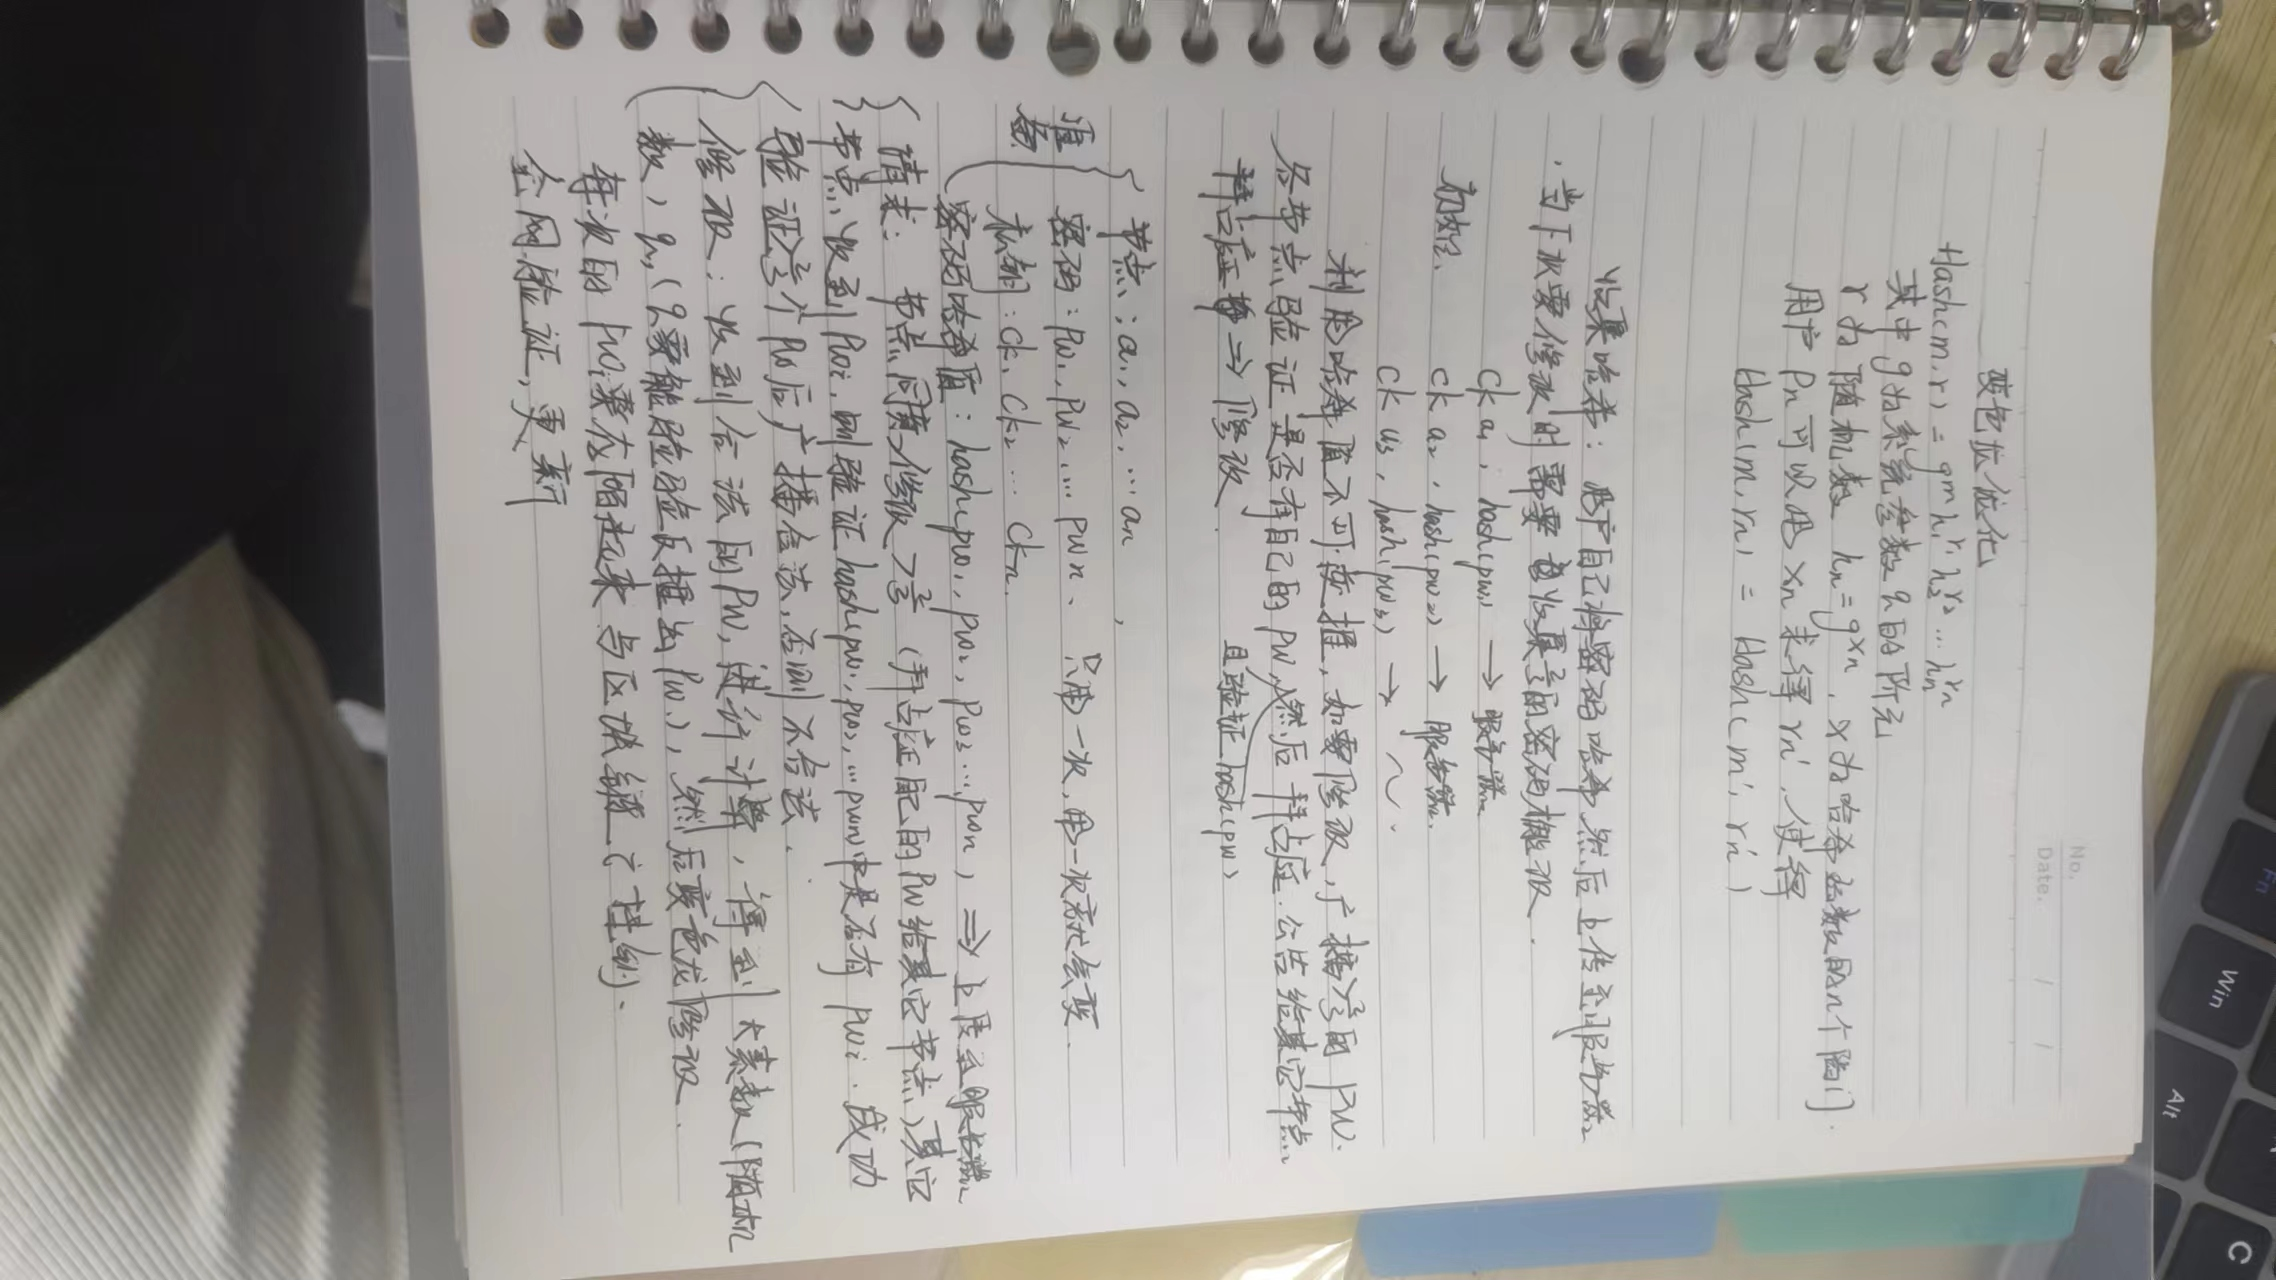 No.
Date. / /
变色龙优化
Hash(m, r) = g^m h₁^r₁ h₂^r₂ … hₙ^rₙ
其中 g为系统参数 q的阶元
r为随机数 hₙ = g^xₙ, x为哈希函数的n个陷门.
用户Pₙ可以用xₙ求得rₙ', 使得
Hash(m, rₙ) = Hash(m', rₙ')
收集哈希: 用户自己将密码哈希 然后上传至服务器
· 当下次要修改时需要 收集⅔的密码概改.
初始:
Ck a₁, hash(pw₁) → 服务器
Ck a₂, hash(pw₂) → 服务器.
Ck a₃, hash(pw₃) → ~.
利用哈希值不可逆推, 如要修改, 广播>⅔的PW.
各节点验证是否有自己的PW, 然后 拜占庭. 公告给其它节点
且验证hash(pw)
拜占庭 ⇒ 修改.
准备
节点: a₁, a₂, … aₙ,
密码: pw₁, pw₂ … pwₙ、 只用一次, 用一次就会变.
私钥: Ck₁ Ck₂ … Ckₙ.
密码哈希值: hash(pw₁, pw₂, pw₃ …, pwₙ) ⇒ 上传至服务器
请求: 节点同意修改 >⅔ (拜占庭配的PW给其它节点) 其它
节点收到PWᵢ, 则验证hash(pw₁, pw₂, … pwₙ)中是否有pwᵢ. 成功
验证⅔个PW后广播合法, 否则不合法.
修改: 收到合法的PW, 进行计算, 得到大素数(随机
数) q, (q要能验反推出Pw.), 然后变色龙修改.
每次的PW要在 起来 与区块链 (挂钩).
全网验证, 更新
Fn
Win
Alt
C